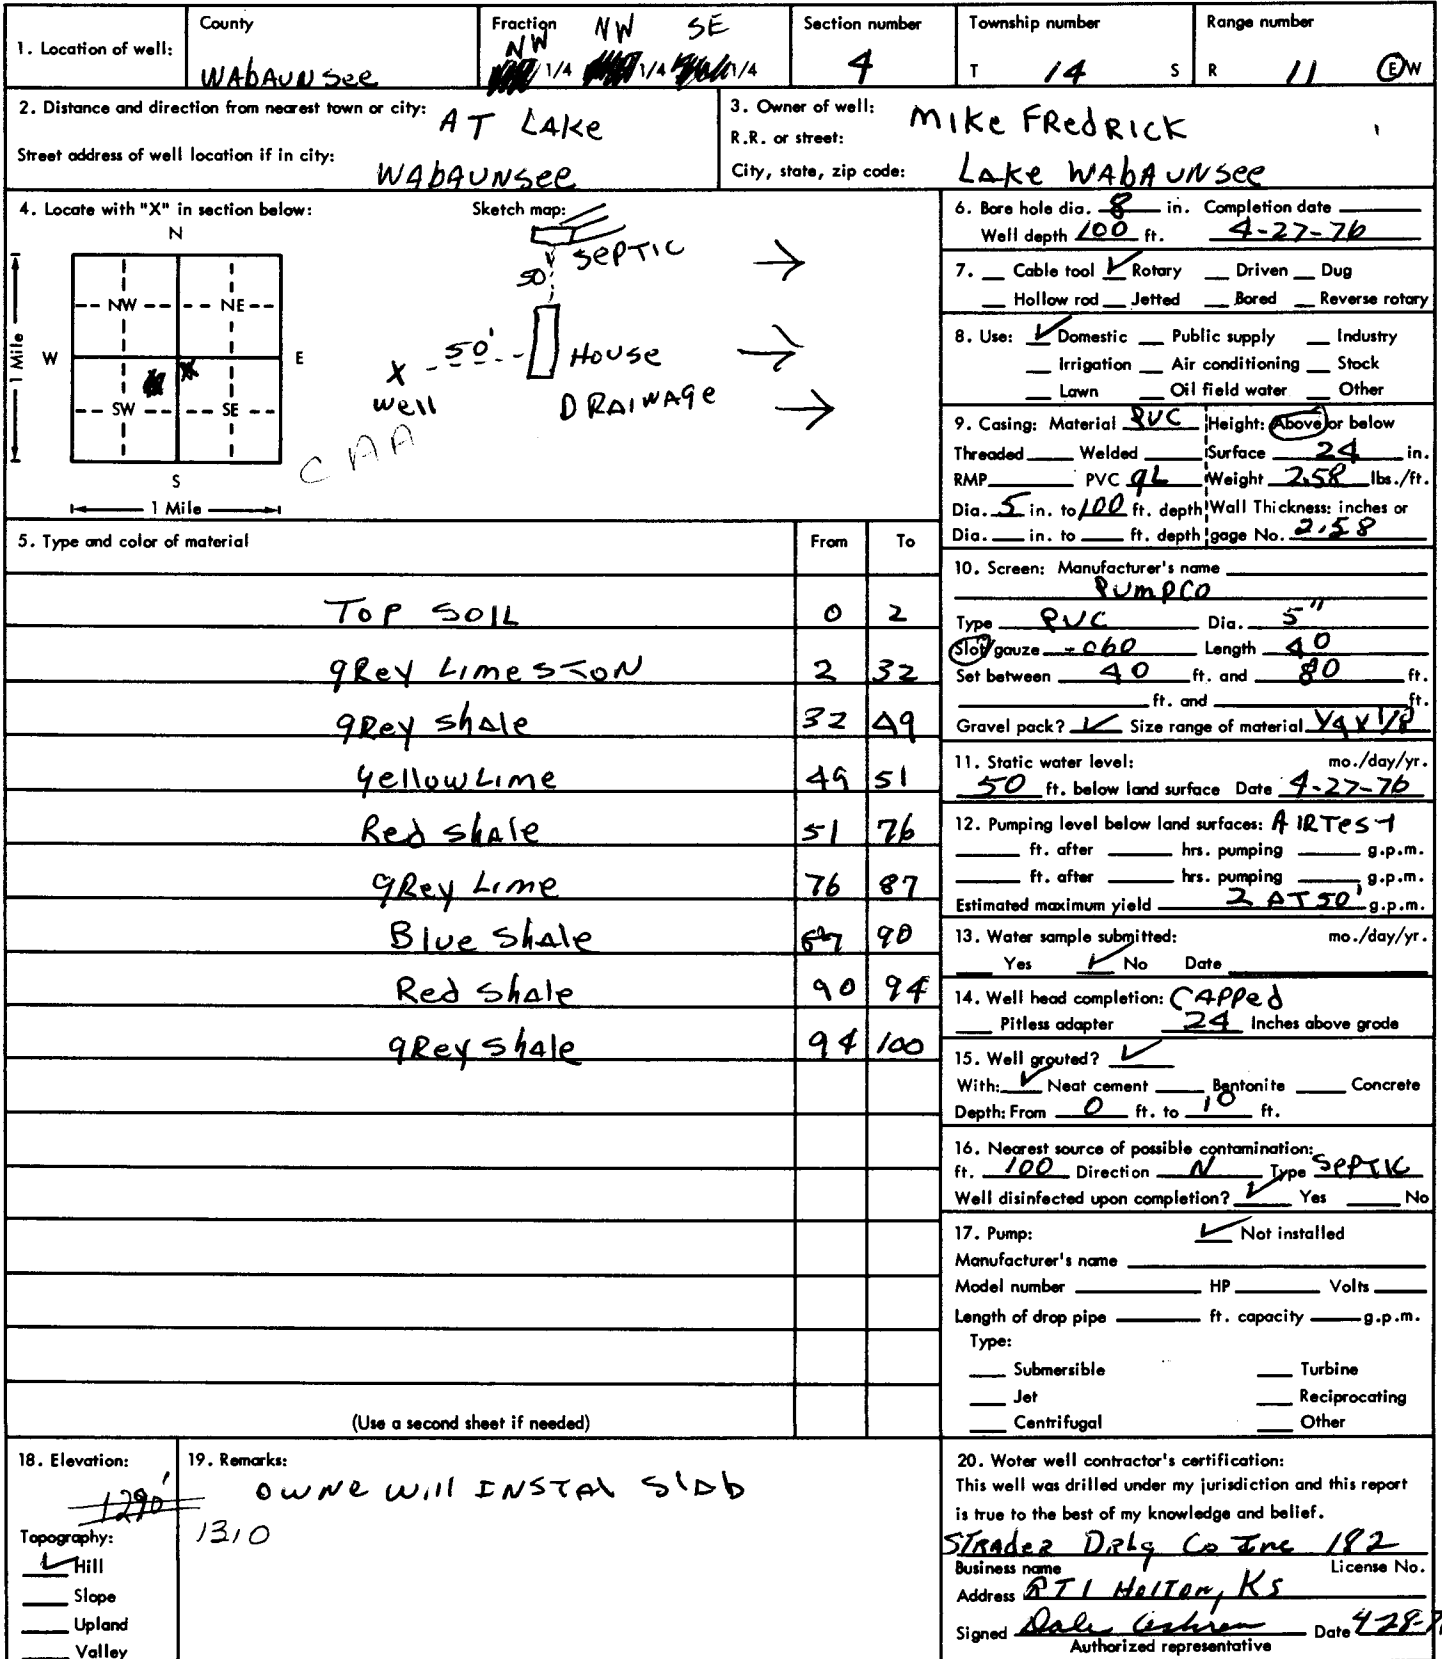 1. Location of well:
County
WAbAUNSee
Fraction
NW NW SE
1/4 1/4 1/4
Section number
4
Township number
T 14 S
Range number
R 11 E W
2. Distance and direction from nearest town or city: AT LAKe
Street address of well location if in city: WAbAUNSee
3. Owner of well: MIKe FRedRICK
R.R. or street:
City, state, zip code: LAKe WAbAUNSee
4. Locate with "X" in section below:
N
NW NE
W E
X
SW SE
S
1 Mile
1 Mile
Sketch map:
SEPTIC
50'
X 50' House
Well DRAINAge
CAA
5. Type and color of material From To
Top SOIL 0 2
gRey LimeSTON 2 32
gRey ShAle 32 49
yellow Lime 49 51
Red ShAle 51 76
gRey Lime 76 87
Blue ShAle 87 90
Red ShAle 90 94
gRey ShAle 94 100
(Use a second sheet if needed)
6. Bore hole dia. 8 in. Completion date
Well depth 100 ft. 4-27-76
7. Cable tool ✓ Rotary Driven Dug
Hollow rod Jetted Bored Reverse rotary
8. Use: ✓ Domestic Public supply Industry
Irrigation Air conditioning Stock
Lawn Oil field water Other
9. Casing: Material PVC Height: Above or below
Threaded Welded Surface 24 in.
RMP PVC gL Weight 2.58 lbs./ft.
Dia. 5 in. to 100 ft. depth Wall Thickness: inches or
Dia. in. to ft. depth gage No. 2.58
10. Screen: Manufacturer's name
PumpCO
Type PVC Dia. 5"
Slot/gauze .060 Length 40
Set between 40 ft. and 80 ft.
ft. and ft.
Gravel pack? ✓ Size range of material 1/4 x 1/8
11. Static water level: mo./day/yr.
50 ft. below land surface Date 4-27-76
12. Pumping level below land surfaces: AIRTesT
ft. after hrs. pumping g.p.m.
ft. after hrs. pumping g.p.m.
Estimated maximum yield 2 AT 50' g.p.m.
13. Water sample submitted: mo./day/yr.
Yes ✓ No Date
14. Well head completion: CAPPed
Pitless adapter 24 Inches above grade
15. Well grouted? ✓
With: ✓ Neat cement Bentonite Concrete
Depth: From 0 ft. to 10 ft.
16. Nearest source of possible contamination:
ft. 100 Direction N Type SEPTIC
Well disinfected upon completion? ✓ Yes No
17. Pump: ✓ Not installed
Manufacturer's name
Model number HP Volts
Length of drop pipe ft. capacity g.p.m.
Type:
Submersible Turbine
Jet Reciprocating
Centrifugal Other
18. Elevation:
1290'
1310
Topography:
✓ Hill
Slope
Upland
Valley
19. Remarks:
OWNe Will INSTAl SlAb
20. Water well contractor's certification:
This well was drilled under my jurisdiction and this report
is true to the best of my knowledge and belief.
STRAdeR DRLg Co Inc 182
Business name License No.
Address RT1 HolTon, KS
Signed Dale Date 4-28-7
Authorized representative